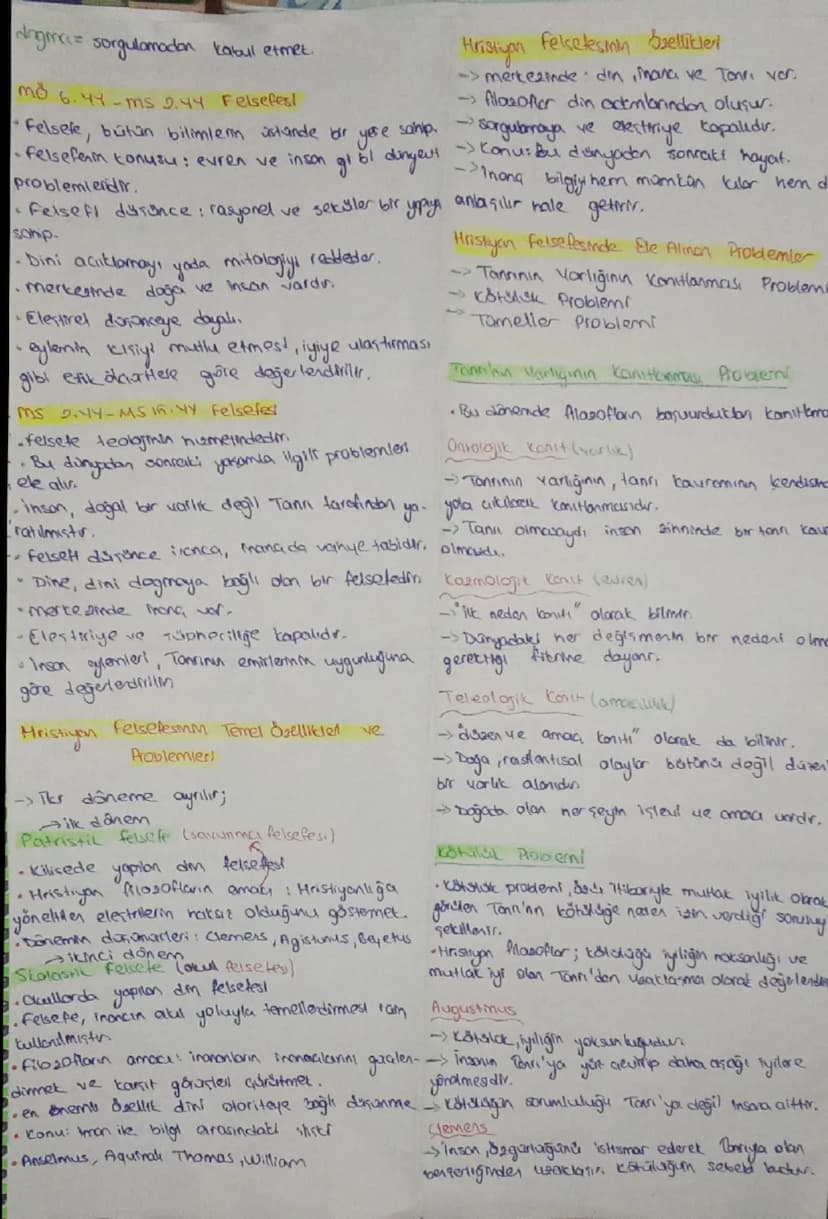 dogma = sorgulamadan kabul etmek.
MÖ 6.yy – MS 2.yy Felsefesi
• Felsefe, bütün bilimlerin üstünde bir yere sahip.
• Felsefenin konusu: evren ve insan gibi dünyevi
problemlerdir.
• Felsefi düşünce: rasyonel ve seküler bir yapıya
sahip.
• Dini açıklamayı yada mitolojiyi reddeder.
• merkezinde doğa ve insan vardır.
• Eleştirel düşünceye dayalı.
• eylemin kişiyi mutlu etmesi, iyiye ulaştırması
gibi etik ölçütlere göre değerlendirilir.
MS 2.yy – MS 15.yy Felsefesi
• felsefe teolojinin hizmetindedir.
• Bu dünyadan sonraki yaşamla ilgili problemleri
ele alır.
• insan, doğal bir varlık değil Tanrı tarafından ya-
ratılmıştır.
• Felsefi düşünce inanca, inançda vahye tabidir.
• Dine, dini dogmaya bağlı olan bir felsefedir.
• merkezinde inanç var.
• Eleştiriye ve şüpheciliğe kapalıdır.
• insan eylemleri, Tanrının emirlerinin uygunluğuna
göre değerlendirilir
Hristiyan Felsefesinin Temel Özellikleri ve
Problemleri
-> İki döneme ayrılır;
-> ilk dönem
Patristik felsefe (savunma felsefesi)
• Kilisede yapılan din felsefesi
• Hristiyan filozofların amacı: Hristiyanlığa
yöneltilen eleştirilerin haksız olduğunu göstermek.
• Dönemin düşünürleri: Clemens, Agistunus,
-> ikinci dönem
Skolastik Felsefe (okul felsefesi)
• Okullarda yapılan din felsefesi
• Felsefe, inancın akıl yoluyla temellendirmesi için
kullanılmıştır
• Filozofların amacı: inananların inançlarını güçlen-
dirmek ve karşıt görüşleri çürütmek.
• en önemli özellik dini otoriteye bağlı düşünme
• Konu: iman ile bilgi arasındaki ilişki
• Anselmus, Aquinalı Thomas, William
Hristiyan Felsefesinin Özellikleri
-> merkezinde din, inanç ve Tanrı var.
-> filozoflar din adamlarından oluşur.
-> sorgulamaya ve eleştiriye kapalıdır.
-> Konu: Bu dünyadan sonraki hayat.
-> inanç bilgiyi hem mümkün kılar hem d
anlaşılır hale getirir.
Hristiyan Felsefesinde Ele Alınan Problemler
-> Tanrının Varlığının Kanıtlanması Problemi
-> Kötülük Problemi
-> Tümeller Problemi
Tanrı'nın Varlığının Kanıtlanması Problemi
• Bu dönemde filozofların başvurdukları kanıtlama
Ontolojik Kanıt (varlık)
-> Tanrının varlığının, tanrı kavramının kendisind
yola çıkılarak kanıtlanmasıdır.
-> Tanrı olmasaydı insan zihninde bir tanrı kav
olmazdı.
Kozmolojik Kanıt (evren)
-> "ilk neden kanıtı" olarak bilinir.
-> Dünyadaki her değişmenin bir nedeni olma
gerektiği fikrine dayanır.
Teleolojik Kanıt (amaçlılık)
-> "düzen ve amaç kanıtı" olarak da bilinir.
-> Doğa, rastlantısal olaylar bütünü değil düzen
bir varlık alanıdır
-> Doğada olan herşeyin işlevi ve amacı vardır.
Kötülük Problemi
• Kötülük problemi, özü itibariyle mutlak iyilik olarak
görülen Tanrı'nın kötülüğe neden izin verdiği sorusuyla
şekillenir.
• Hristiyan filozoflar; kötülüğü iyiliğin noksanlığı ve
mutlak iyi olan Tanrı'dan uzaklaşma olarak değerlendir
Augustinus
-> Kötülük, iyiliğin yoksunluğudur.
-> insanın Tanrı'ya yüz çevirip daha aşağı iyilere
yönelmesidir.
-> Kötülüğün sorumluluğu Tanrı'ya değil insana aittir.
Clemens
-> insan, özgürlüğünü istismar ederek Tanrıya olan
benzerliğinden uzaklaşır. Kötülüğün sebebi budur.